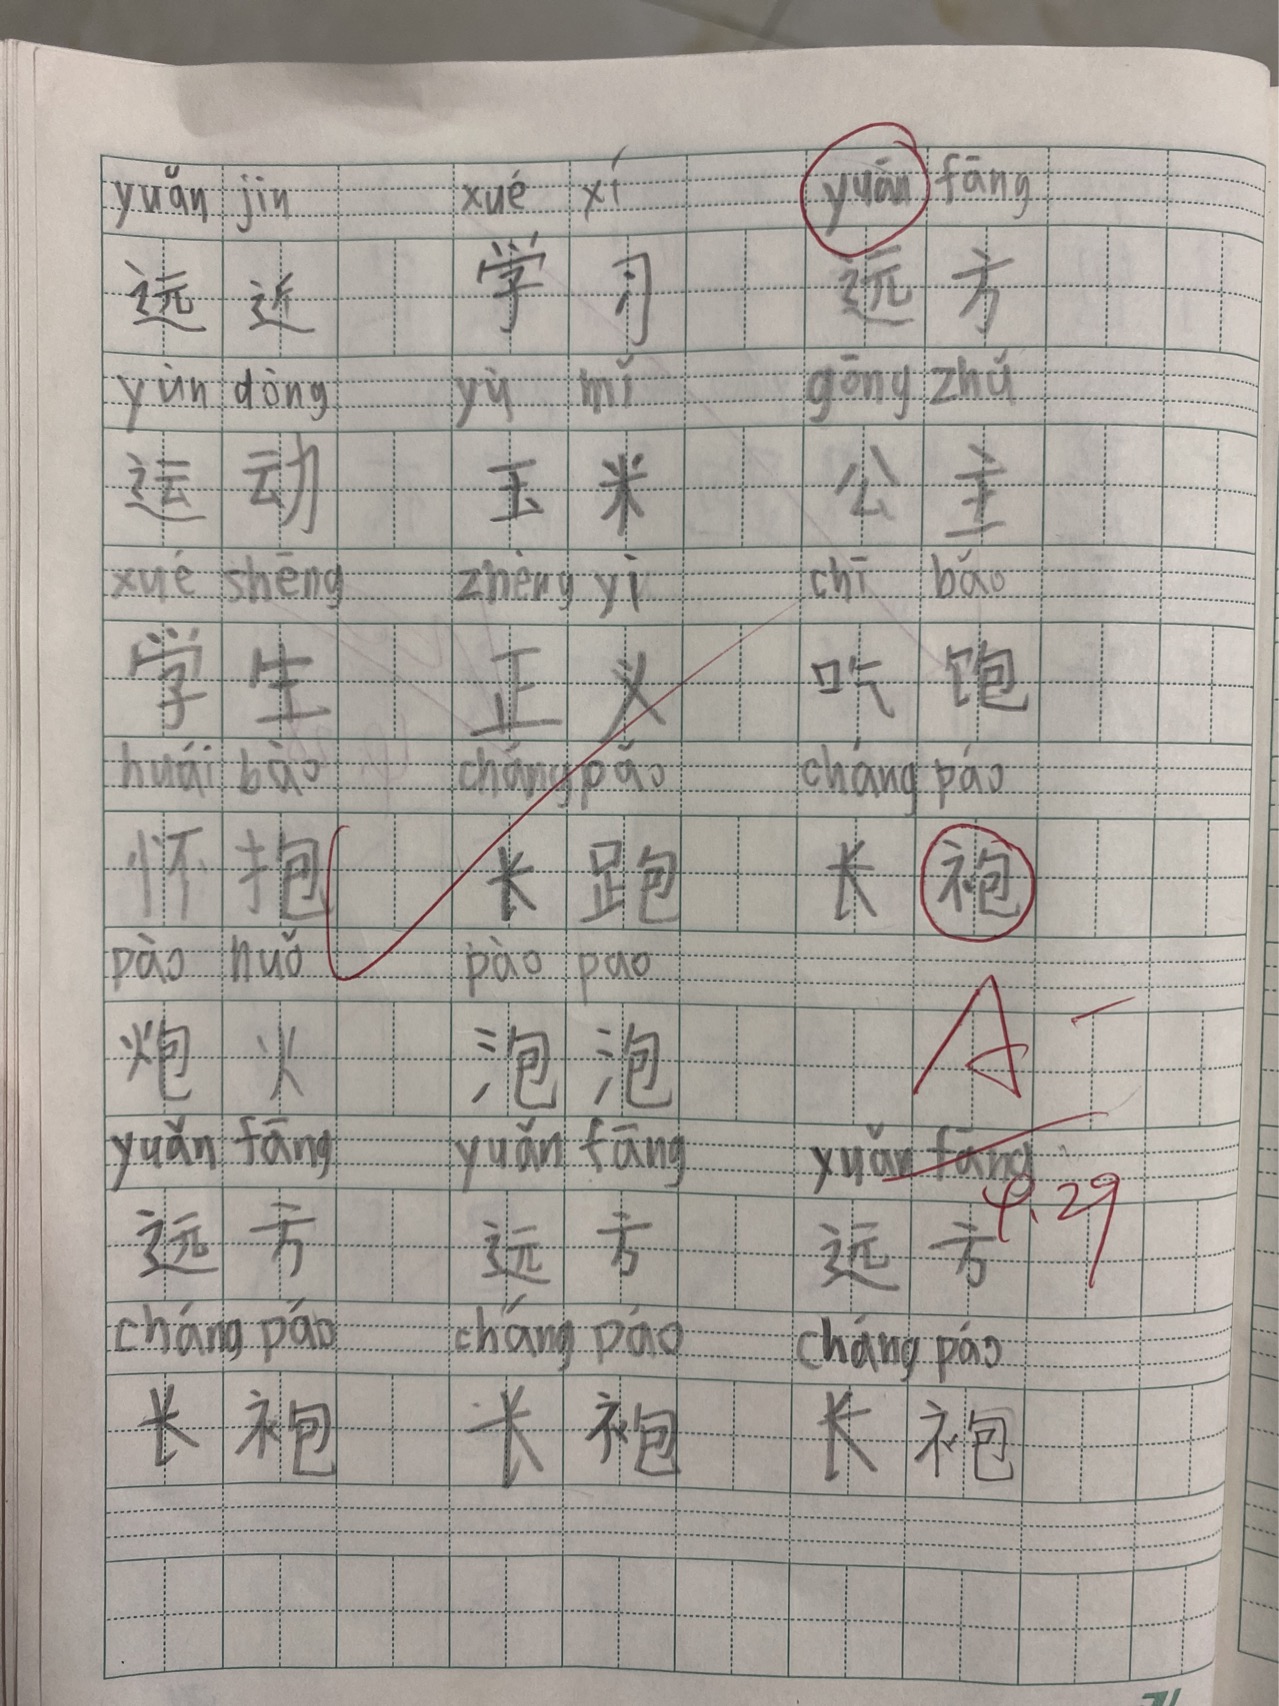 yuǎn jìn xué xí yuán fāng
远 近 学 习 远 方
yùn dòng yù mǐ gōng zhǔ
运 动 玉 米 公 主
xué shēng zhèng yì chī bǎo
学 生 正 义 吃 饱
huái bào cháng pǎo cháng páo
怀 抱 长 跑 长 袍
pào huǒ pào pao
炮 火 泡 泡
A-
yuǎn fāng yuǎn fāng yuǎn fāng
4.29
远 方 远 方 远 方
cháng páo cháng páo cháng páo
长 袍 长 袍 长 袍